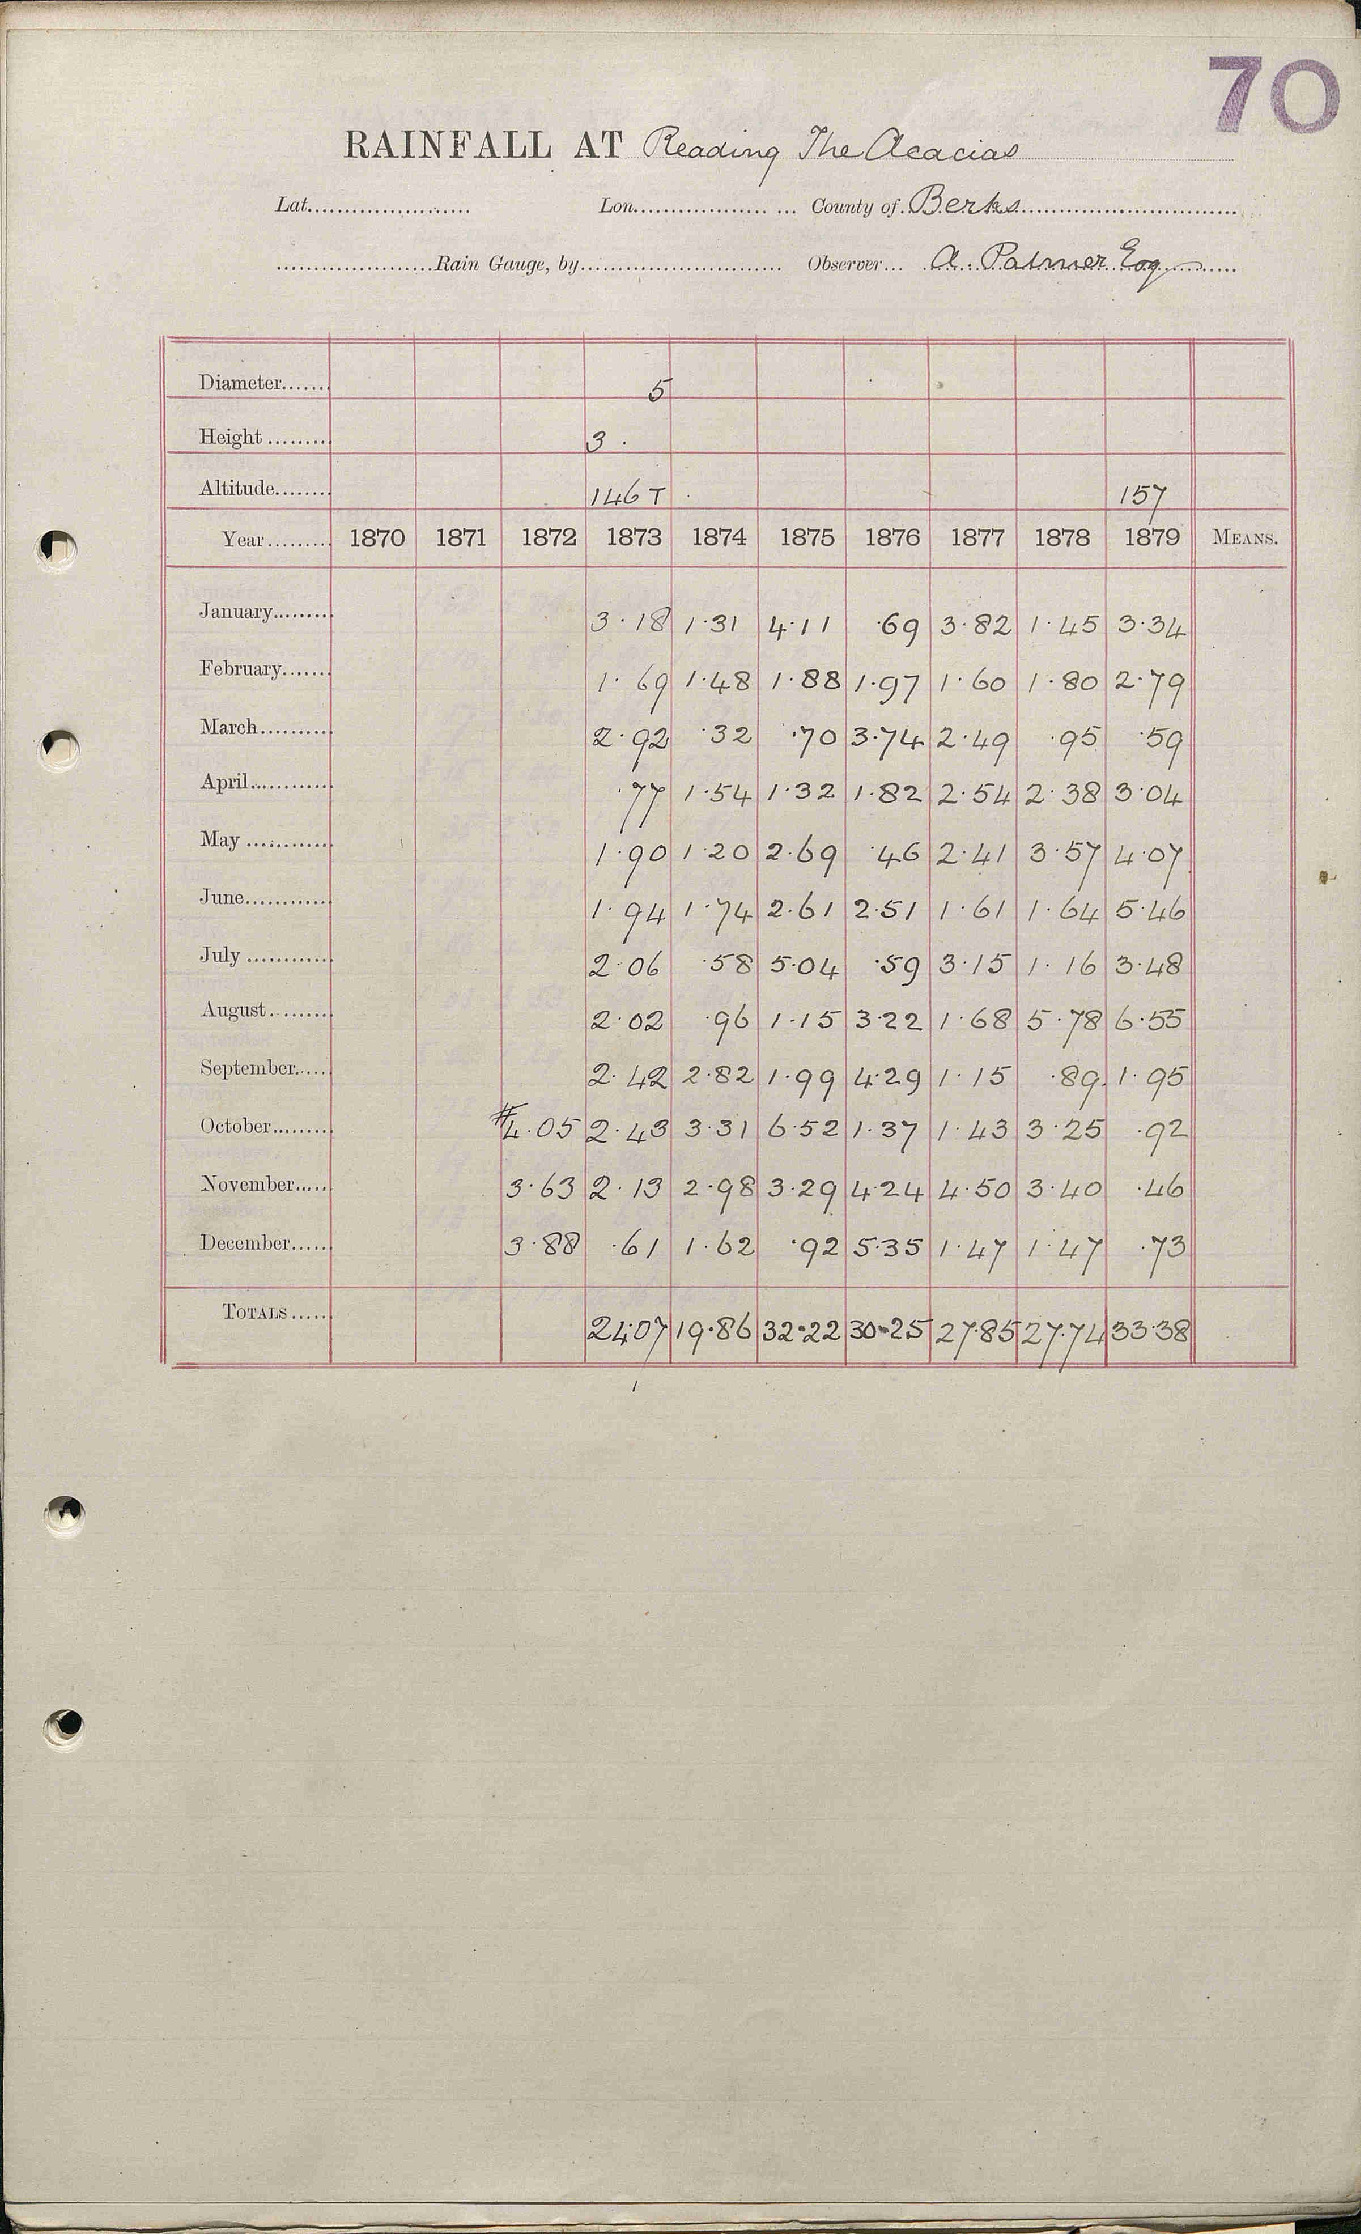 70
RAINFALL AT Reading The Acacias
Lat. Lon. County of Berks
Rain Gauge, by Observer A. Palmer Esq
Diameter 5
Height 3.
Altitude 146 T 157
Year 1870 1871 1872 1873 1874 1875 1876 1877 1878 1879 MEANS.
January 3.18 1.31 4.11 .69 3.82 1.45 3.34
February 1.69 1.48 1.88 1.97 1.60 1.80 2.79
March 2.92 .32 .70 3.74 2.49 .95 .59
April .77 1.54 1.32 1.82 2.54 2.38 3.04
May 1.90 1.20 2.69 .46 2.41 3.57 4.07
June 1.94 1.74 2.61 2.51 1.61 1.64 5.46
July 2.06 .58 5.04 .59 3.15 1.16 3.48
August 2.02 .96 1.15 3.22 1.68 5.78 6.55
September 2.42 2.82 1.99 4.29 1.15 .89 1.95
October #4.05 2.43 3.31 6.52 1.37 1.43 3.25 .92
November 3.63 2.13 2.98 3.29 4.24 4.50 3.40 .46
December 3.88 .61 1.62 .92 5.35 1.47 1.47 .73
TOTALS 24.07 19.86 32.22 30.25 27.85 27.74 33.38